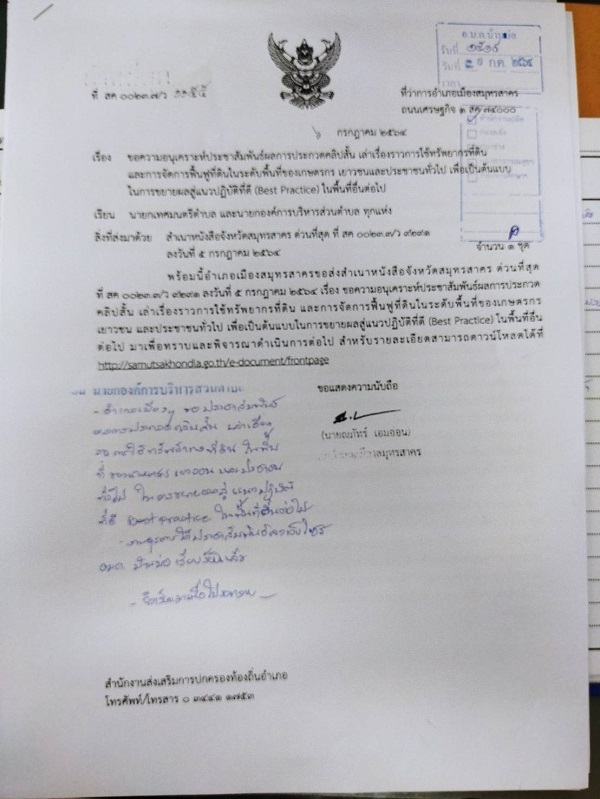 อ.บ.ต.บ้านบ่อ
วันที่
ก.ค. ๒๕๖๔
เวลา
ที่ สค ๐๐๒๓.๗/ว
ที่ว่าการอำเภอเมืองสมุทรสาคร
ถนนเศรษฐกิจ ๑ สค ๗๔๐๐๐
สำนักงานปลัด
กองคลัง
กรกฎาคม ๒๕๖๔
เรื่อง ขอความอนุเคราะห์ประชาสัมพันธ์ผลการประกวดคลิปสั้น เล่าเรื่องราวการใช้ทรัพยากรที่ดิน
และการจัดการฟื้นฟูที่ดินในระดับพื้นที่ของเกษตรกร เยาวชนและประชาชนทั่วไป เพื่อเป็นต้นแบบ
ในการขยายผลสู่แนวปฏิบัติที่ดี (Best Practice) ในพื้นที่อื่นต่อไป
เรียน นายกเทศมนตรีตำบล และนายกองค์การบริหารส่วนตำบล ทุกแห่ง
สิ่งที่ส่งมาด้วย สำเนาหนังสือจังหวัดสมุทรสาคร ด่วนที่สุด ที่ สค ๐๐๒๓.๓/ว ๙๒๙๑
ลงวันที่ ๕ กรกฎาคม ๒๕๖๔
จำนวน ๑ ชุด
พร้อมนี้อำเภอเมืองสมุทรสาครขอส่งสำเนาหนังสือจังหวัดสมุทรสาคร ด่วนที่สุด
ที่ สค ๐๐๒๓.๓/ว ๙๒๙๑ ลงวันที่ ๕ กรกฎาคม ๒๕๖๔ เรื่อง ขอความอนุเคราะห์ประชาสัมพันธ์ผลการประกวด
คลิปสั้น เล่าเรื่องราวการใช้ทรัพยากรที่ดิน และการจัดการฟื้นฟูที่ดินในระดับพื้นที่ของเกษตรกร
เยาวชน และประชาชนทั่วไป เพื่อเป็นต้นแบบในการขยายผลสู่แนวปฏิบัติที่ดี (Best Practice) ในพื้นที่อื่น
ต่อไป มาเพื่อทราบและพิจารณาดำเนินการต่อไป สำหรับรายละเอียดสามารถดาวน์โหลดได้ที่
http://samutsakhondla.go.th/e-document/frontpage
ขอแสดงความนับถือ
นายกองค์การบริหารส่วนตำบล
- อำเภอเมืองฯ ขอประชาสัมพันธ์
ผลการประกวดคลิปสั้น เล่าเรื่อง
ราวการใช้ทรัพยากรที่ดิน ในพื้น
ที่ ของเกษตรกร เยาวชน และประชาชน
ทั่วไป ในการขยายผลสู่ แนวปฏิบัติ
ที่ดี Best practice ในพื้นที่อื่นต่อไป
อบต. บ้านบ่อ เรียบร้อยแล้ว
(นายณภัทร์ เอมออน)
สมุทรสาคร
สำนักงานส่งเสริมการปกครองท้องถิ่นอำเภอ
โทรศัพท์/โทรสาร ๐ ๓๔๔๑ ๑๗๕๓